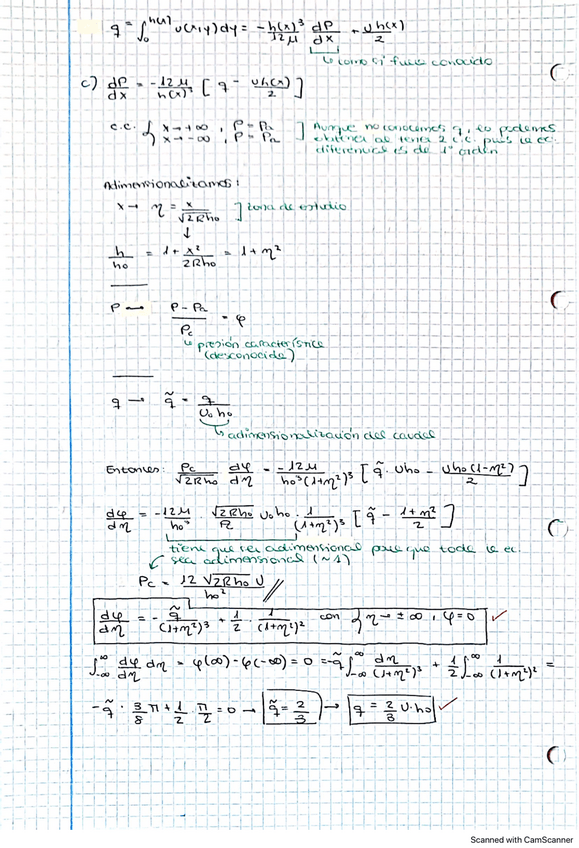 q = ∫₀^{h(x)} u(x,y)dy = -h(x)³/12μ dP/dx + Uh(x)/2
↳ como si fuese conocido
c) dP/dx = -12μ/h(x)³ [ q - Uh(x)/2 ]
c.c. { x→+∞ , P=Pa
x→-∞ , P=Pa
] Aunque no conocemos q, lo podemos
obtener al tener 2 c.c. pues la ec.
diferencial es de 1er orden
Adimensionalizamos:
x → η = x/√2Rho ] zona de estudio
↓
h/ho = 1 + x²/2Rho = 1+η²
P → P-Pa/Pc = φ
↳ presión característica
(desconocida)
q → q̃ = q/Uoho
↳ adimensionalización del caudal
Entonces: Pc/√2Rho dφ/dη = -12μ/ho³(1+η²)³ [ q̃ · Uho - Uho(1-η²)/2 ]
dφ/dη = -12μ/ho³ · √2Rho/Pc Uoho · 1/(1+η²)³ [ q̃ - 1+η²/2 ]
tiene que ser adimensional para que toda la ec.
sea adimensional (~1)
Pc = 12√2Rho U/ho² //
dφ/dη = -q̃/(1+η²)³ + 1/2 · 1/(1+η²)² con { η→±∞ , φ=0 ✓
∫₋∞^∞ dφ/dη dη = φ(∞)-φ(-∞) = 0 = -q̃ ∫₋∞^∞ dη/(1+η²)³ + 1/2 ∫₋∞^∞ 1/(1+η²)² =
-q̃ · 3/8 π + 1/2 · π/2 = 0 → q̃ = 2/3 → q = 2/3 U·ho ✓
Scanned with CamScanner